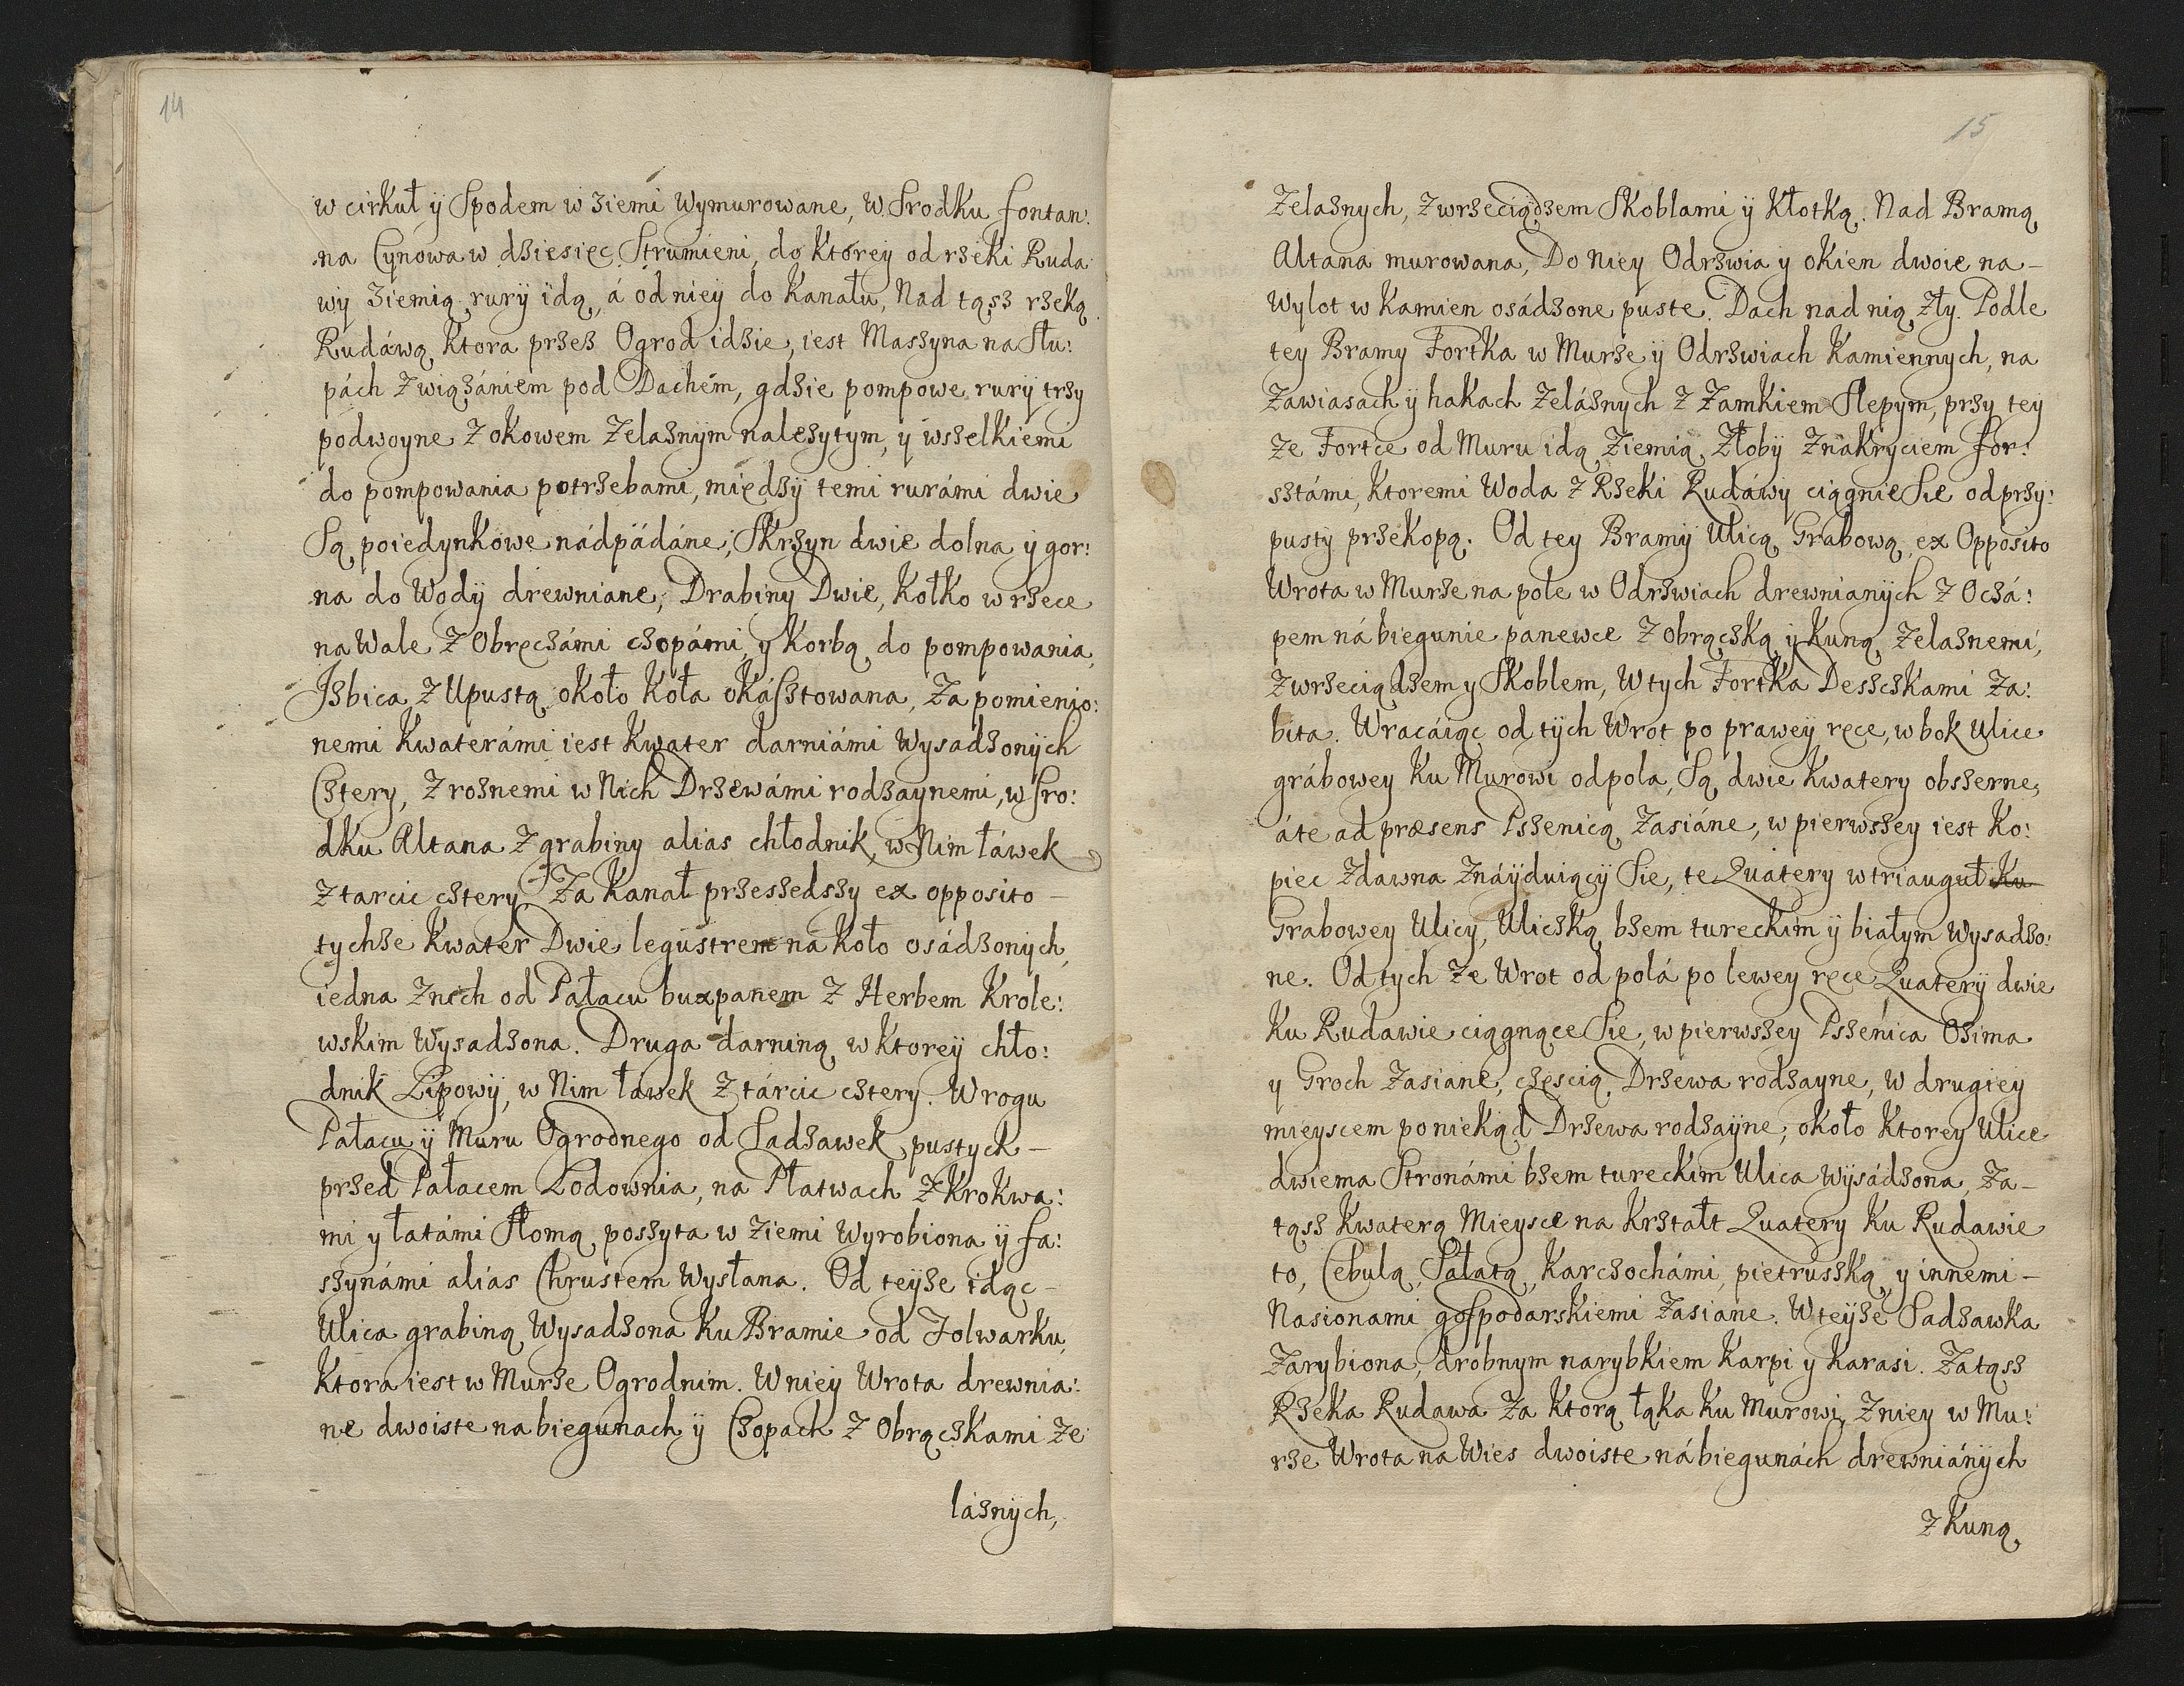 14
w cirkuł ÿ Spodem w ziemi Wymurowane, W Srodku fontan:
na Cynowa w dziesięc Strumieni, do ktorey od rzeki Ruda
wÿ Ziemią rurÿ idą, á od nieÿ do Kanału, Nad tąsz rzeką
Rudáwą Ktora przez Ogrod idzie, iest Maszyna na Słu:
pách Z wiązániem pod Dachem, gdzie pompowe rurÿ trzy
podwoyne Z okowem Zelaznÿm nalezytym, y wszelkiemi
do pompowania potrzebami, międzÿ temi rurámi dwie
Są poiedynkowe nádpádáne, Skrzyn dwie dolna ÿ gor:
na do Wodÿ drewniane, Drabiny Dwie, Kołko w rzece
na Wale Z Obręczámi czopámi y Korbą do pompowania,
Izbica Z Upustą około Koła okásztowana, Za pomienio:
nemi Kwaterámi iest Kwater darniámi Wysadzonÿch
Cztery, Z roznemi w Nich Drzewámi rodzaynemi, w sro:
dku Altana Z grabiny alias chłodnik, w Nim łáwek
Z tarcic cztery. Za Kanał przeszedszy ex opposito –
tychze Kwater Dwie legustrem na Koło osádzonÿch,
iedna Znich od Pałacu buxpanem Z Herbem Krole:
wskim Wysadzona. Druga darniną w Ktoreÿ chło:
dnik Lipowÿ, w Nim ławek Z tárcic cztery. W rogu
Pałacu ÿ Muru Ogrodnego od Sadzawek pustych –
przed Pałacem Lodownia, na Płatwach Z Krokwa:
mi y łatámi Słomą poszyta w Ziemi Wyrobiona ÿ fa:
szynámi alias Chrustem Wysłana. Od teÿze idąc –
Ulica grabiną Wysadzona Ku Bramie od Folwarku,
Ktora iest w Murze Ogrodnim. W nieÿ Wrota drewnia:
ne dwoiste na biegunach ÿ Czopach Z Obrączkami Ze
láznÿch,
15
Zelaznych, Z wrzeciądzem Skoblami ÿ Kłotką. Nad Bramą
Altana murowana, Do Niey Odrzwia y okien dwoie na –
Wylot w Kamien osádzone puste. Dach nad nią Zły. Podle
tey Bramy Fortka w Murze ÿ Odrzwiach Kamiennych, na
Zawiasach ÿ hakach Zeláznych Z Zamkiem Slepym, przy tey
Ze Fortce od Muru idą Ziemią Złobÿ Z nakryciem for:
sztámi, Ktoremi Woda Z Rzeki Rudáwÿ ciągnie Sie od przy:
pusty przekopą. Od tey Bramÿ Ulicą Grabową ex Opposito
Wrota w Murze na pole w Odrzwiach drewnianÿch Z Oczá:
pem ná biegunie panewce Z obrączką ÿ Kuną Zelaznemi,
Z wrzeciądzem y Skoblem, W tych Fortka Deszczkami Za:
bita. Wracáiąc od tÿch Wrot po praweÿ ręce, w bok Ulice
grábowey Ku Murowi od pola, Są dwie Kwatery obszerne,
áte ad præsens Pszenicą Zasiáne, w pierwszey iest Ko:
piec Zdawna Znáÿduiącÿ Sie, te Quatery w triaugul Ku
Grabowey Ulicy, Uliczką bzem tureckim ÿ białym Wysadzo:
ne. Od tych Ze Wrot od polá po lewey ręce Quaterÿ dwie
Ku Rudawie ciągnące Sie, w pierwszey Pszenica Ozima
y Groch Zasiane, częscią Drzewa rodzayne, W drugiey
mieyscem poniekąd Drzewa rodzaÿne, około Ktorey Ulice
dwiema Stronámi bzem tureckim Ulica Wÿsádzona, Za –
tąsz Kwaterą Mieysce na Krztałt Quatery Ku Rudawie
to, Cebulą, Sałatą, Karczochámi, pietruszką y innemi –
Nasionami gospodarskiemi Zasiane. W teÿze Sadzawka
Zarybiona, drobnym narybkiem Karpi y Karasi. Za tąsz
Rzeka Rudawa Za Ktorą łąka Ku Murowi, Z niey w Mu:
rze Wrota na Wies dwoiste ná biegunách drewniánÿch
Z Kuną